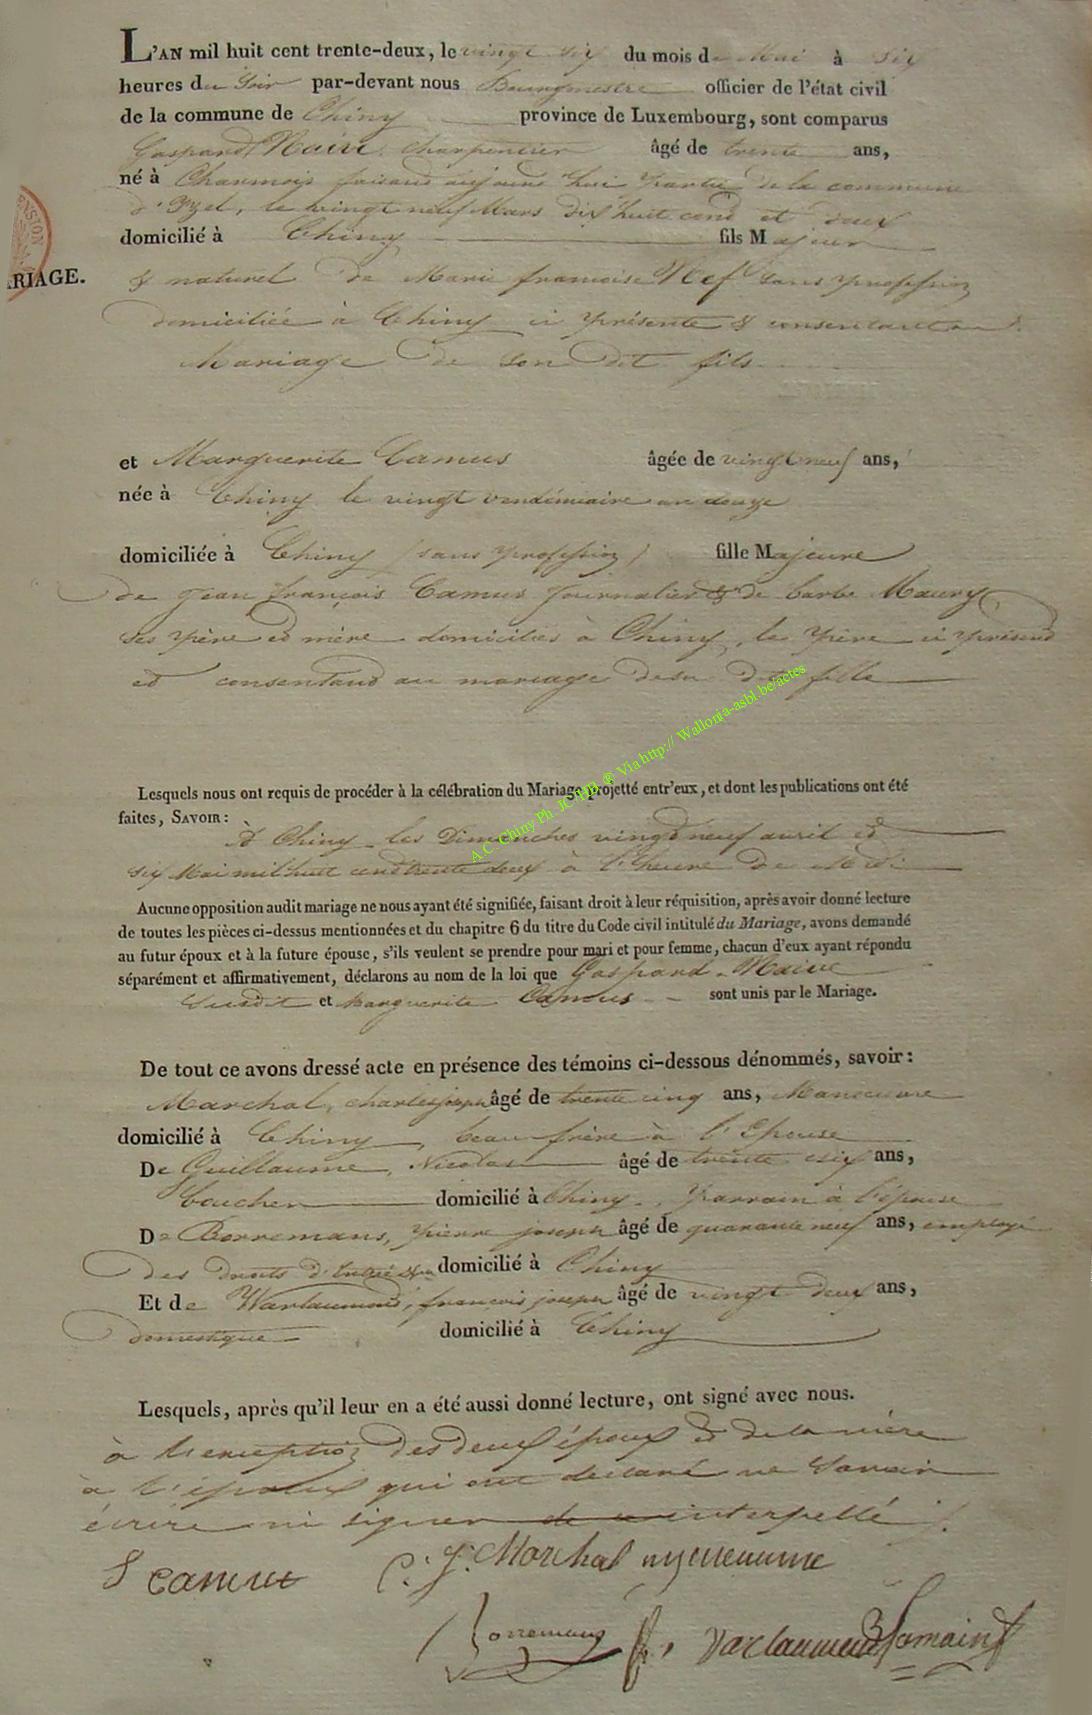 L'AN mil huit cent trente-deux, le vingt six du mois de Mai à six
heures du Soir par-devant nous Bourgmestre officier de l'état civil
de la commune de Chiny province de Luxembourg, sont comparus
Gaspard Naive charpentier âgé de trente ans,
né à Charmois faisant aujourd'hui partie de la commune
d'Izel, le vingt neuf Mars dix huit cend et deux
domicilié à Chiny fils Majeur
MARIAGE.
& naturel de Marie francoise Nef sans profession
domiciliée à Chiny ci présente & consentante au
Mariage de son dit fils
et Marguerite Camus âgée de vingt neuf ans,
née à Chiny le vingt vendémiaire an douze
domiciliée à Chiny (sans profession) fille Majeure
de Jean françois Camus Journalier & de barbe Maury
ses père ed mère domiciliés à Chiny, le père ci présend
ed consentand au mariage de sa dite fille
Lesquels nous ont requis de procéder à la célébration du Mariage projetté entr'eux, et dont les publications ont été
faites, SAVOIR :
À Chiny les Dimanches vingt neuf avril ed
six Mai mil huit cend trente deux à l'heure de Midi
A.C. Chiny Ph. JC HB ® Via http:// Wallonia-asbl.be/actes
Aucune opposition audit mariage ne nous ayant été signifiée, faisant droit à leur réquisition, après avoir donné lecture
de toutes les pièces ci-dessus mentionnées et du chapitre 6 du titre du Code civil intitulé du Mariage, avons demandé
au futur époux et à la future épouse, s'ils veulent se prendre pour mari et pour femme, chacun d'eux ayant répondu
séparément et affirmativement, déclarons au nom de la loi que Gaspard Naive
Susdit et Marguerite Camus sont unis par le Mariage.
De tout ce avons dressé acte en présence des témoins ci-dessous dénommés, savoir :
Marchal, charles joseph âgé de trente cinq ans, Manoeuvre
domicilié à Chiny, beau frère à l'Epouse
De Guillaume, Nicolas âgé de trente six ans,
Coucher domicilié à Chiny, parrain à l'épouse
De Borremans, pierre joseph âgé de quarante neuf ans, employé
des Droits d'Entrée domicilié à Chiny
Et de Warlaumond, francois joseph âgé de vingt deux ans,
domestique domicilié à Chiny
Lesquels, après qu'il leur en a été aussi donné lecture, ont signé avec nous.
à l'exception des deux époux & de la mère
à l'époux qui ont declaré ne savoir
écrire ni signer de ce interpellé
J camus C. J. Marchal
Borremans f. j. varlaumond Lamain